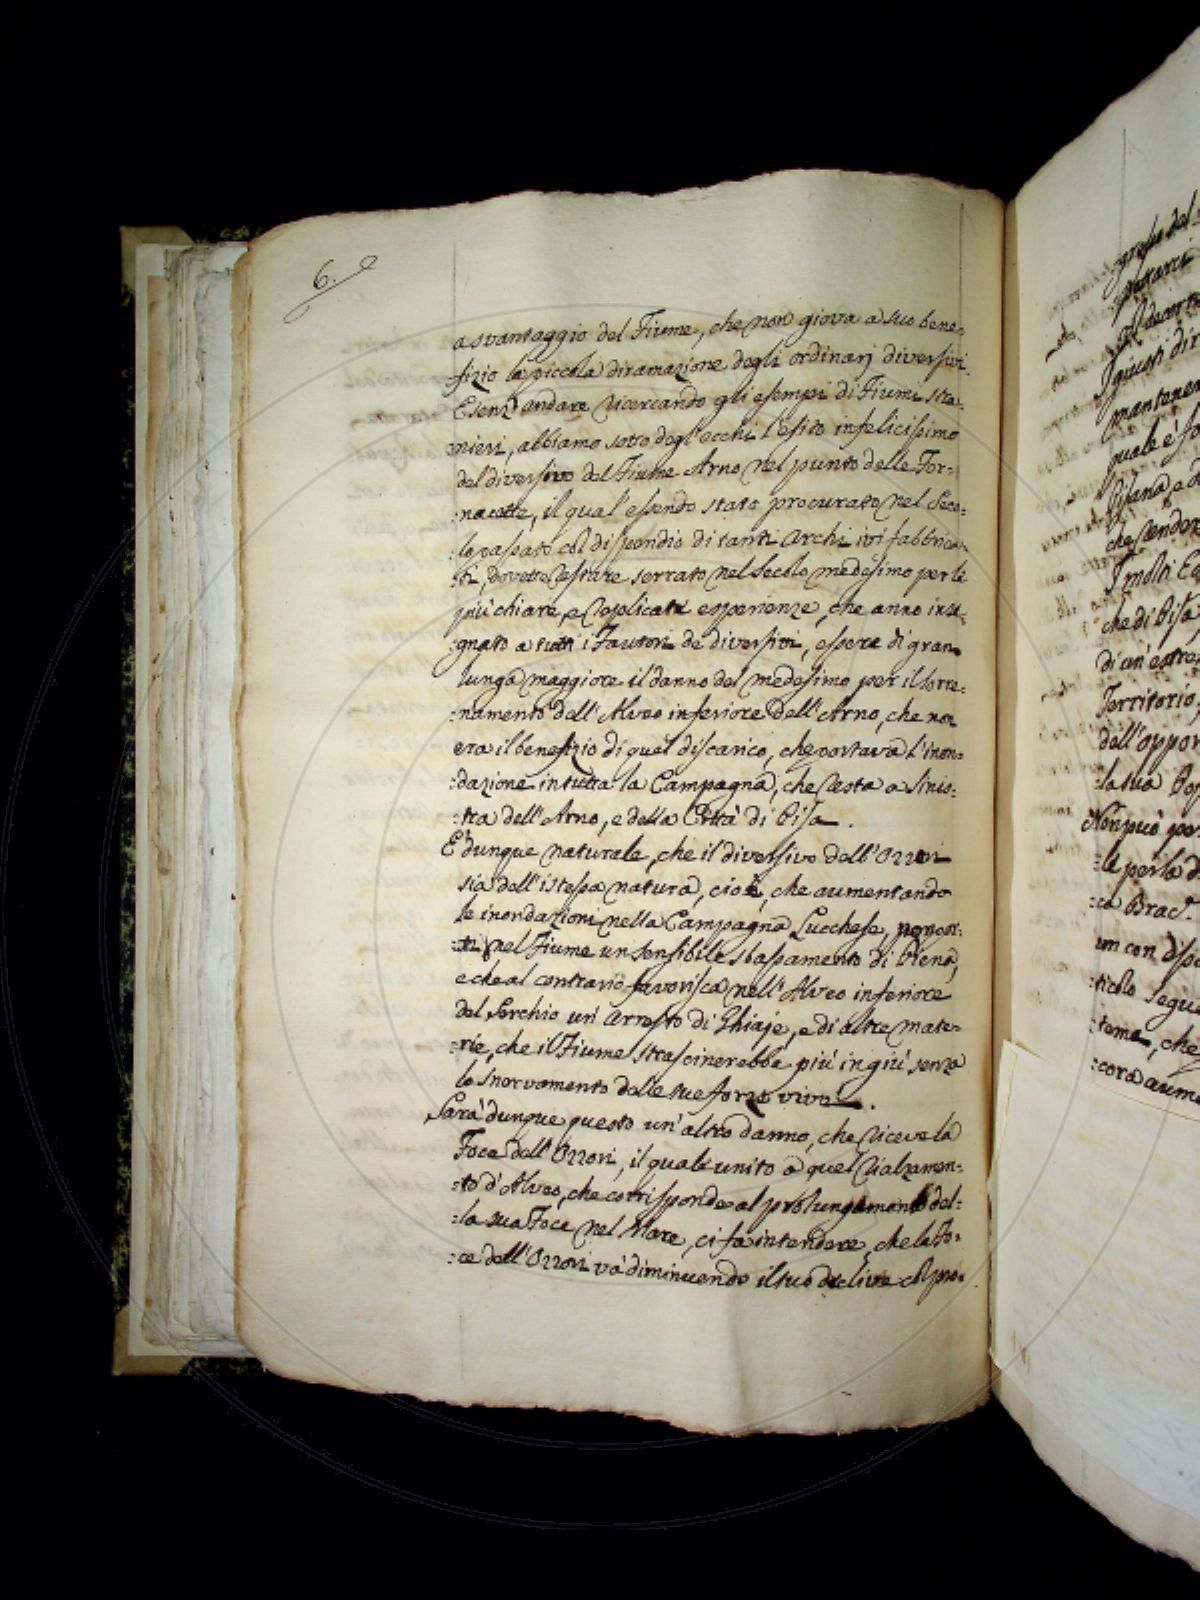 6.
a svantaggio del Fiume, che non giova a suo bene-
:fizio la piccola diramazione degli ordinarj diversivi.
E senz'andare ricercando gli esempi di Fiumi stra-
nieri, abbiamo sotto degl'occhi l'esito infelicissimo
del diversivo del Fiume Arno nel punto delle For-
:nacette, il qual'essendo stato procurato nel Seco-
:lo passato col dispendio di tanti Archi ivi fabbrica-
:ti, dovette restare serrato nel secolo medesimo per le
più chiare, e replicate esperienze, che anno inse-
:gnato a tutti i Fautori de diversivi, essere di gran
lunga maggiore il danno del medesimo per il Sorre-
:namento dell'Alveo inferiore dell'Arno, che non
era il benefizio di quel discarico, che portava l'inon-
:dazione in tutta la Campagna, che resta a sinis-
:tra dell'Arno, e della Città di Pisa.
E' dunque naturale, che il diversivo dell'Ozzori
sia dell'istessa natura, cioè, che aumentando
le inondazioni nella Campagna Lucchese, non por-
:ti nel Fiume un sensibile sbassamento di Piena,
e che al contrario favorisca nell'Alveo inferiore
del Serchio un'Arresto di Ghiaje, e di altre mate-
:rie, che il Fiume strascinerebbe più in giù senza
lo snervamento delle sue forze vive.
Sarà dunque questo un'altro danno, che riceve la
Foce dell'Ozzori, il quale unito a quel rialzamen-
:to d'Alveo, che corrisponde al prolungamento del-
:la sua Foce nel Mare, ci fa intendere, che la Fo-
:ce dell'Ozzori và diminuendo il suo declive col pro-
:gresso del-
giusti dir
mantenen
quale è
Pisana, e
che
I molti
che di Pisa
di un'estre
Territorio,
dell'oppor
:la sua Pop
Non può per
:le per la d
:ca Brac.
um con
:ticolo segue
:tema, che
:cora aume